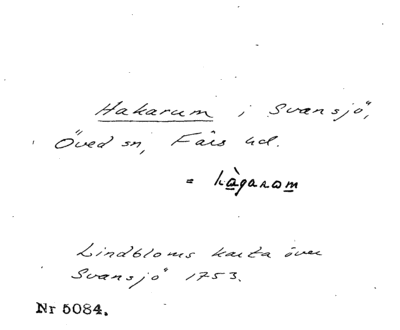 Hakarum i Svansjö,
Öved sn, Färs hd.
= hàgarom
Lindbloms karta över
Svansjö 1753.
Nr 5084.